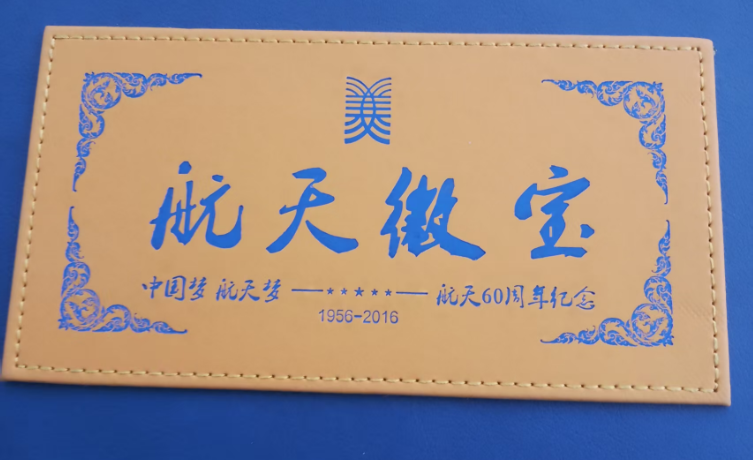 航天徽宝
中国梦 航天梦 ——★★★★★—— 航天60周年纪念
1956-2016